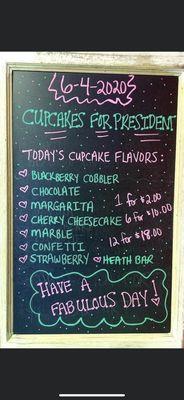 6-4-2020
CUPCAKES FOR PRESIDENT
TODAY'S CUPCAKE FLAVORS:
BLACKBERRY COBBLER
CHOCOLATE
MARGARITA 1 for $2.00
CHERRY CHEESECAKE 6 for $10.00
MARBLE
CONFETTI 12 for $18.00
STRAWBERRY HEATH BAR
HAVE A
FABULOUS DAY!